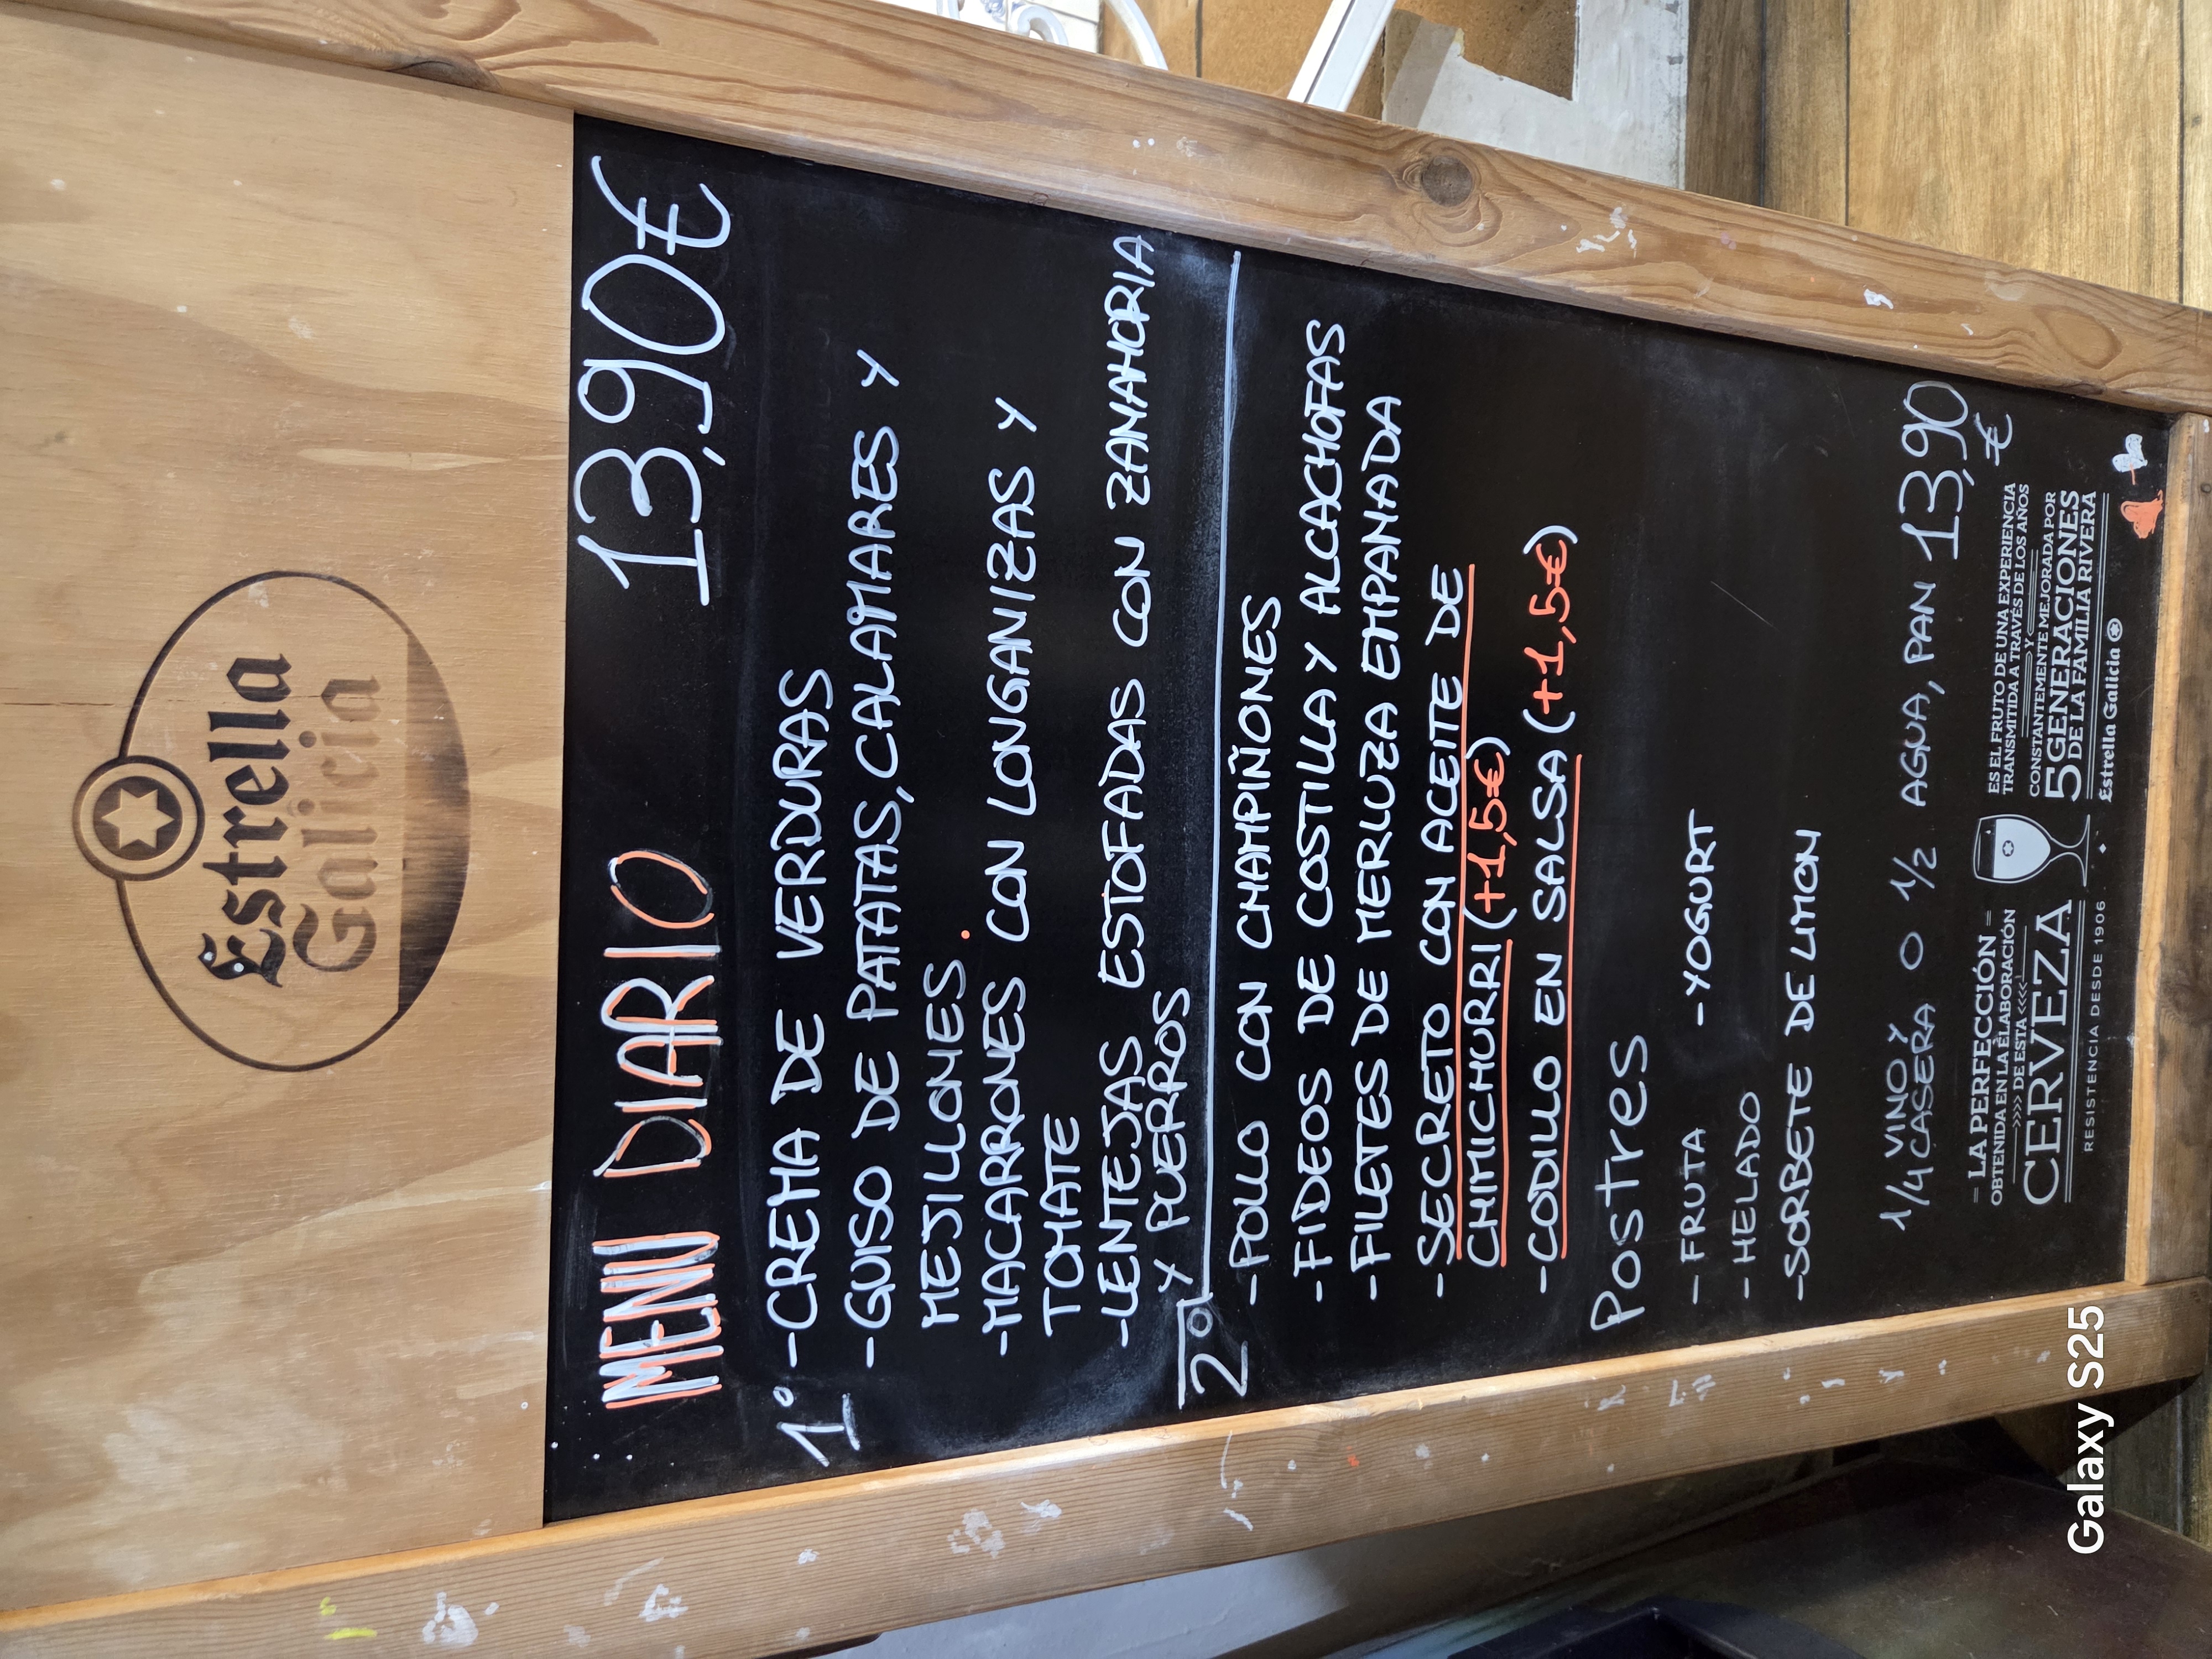 Estrella
Galicia
MENU DIARIO 13,90€
1º -CREMA DE VERDURAS
-GUISO DE PATATAS, CALAMARES Y
MEJILLONES.
-MACARRONES CON LONGANIZAS Y
TOMATE
-LENTEJAS ESTOFADAS CON ZANAHORIA
Y PUERROS
2º -POLLO CON CHAMPIÑONES
-FIDEOS DE COSTILLA Y ALCACHOFAS
-FILETES DE MERLUZA EMPANADA
-SECRETO CON ACEITE DE
CHIMICHURRI (+1,5€)
-CODILLO EN SALSA (+1,5€)
Postres
-FRUTA -YOGURT
-HELADO
-SORBETE DE LIMON
1/4 VINO Y
CASERA O 1/2 AGUA, PAN 13,90
€
LA PERFECCIÓN
OBTENIDA EN LA ELABORACIÓN
>>>> DE ESTA <<<<
CERVEZA
RESISTENCIA DESDE 1906
ES EL FRUTO DE UNA EXPERIENCIA
TRANSMITIDA A TRAVÉS DE LOS AÑOS
Y
CONSTANTEMENTE MEJORADA POR
5 GENERACIONES
DE LA FAMILIA RIVERA
Estrella Galicia
Galaxy S25